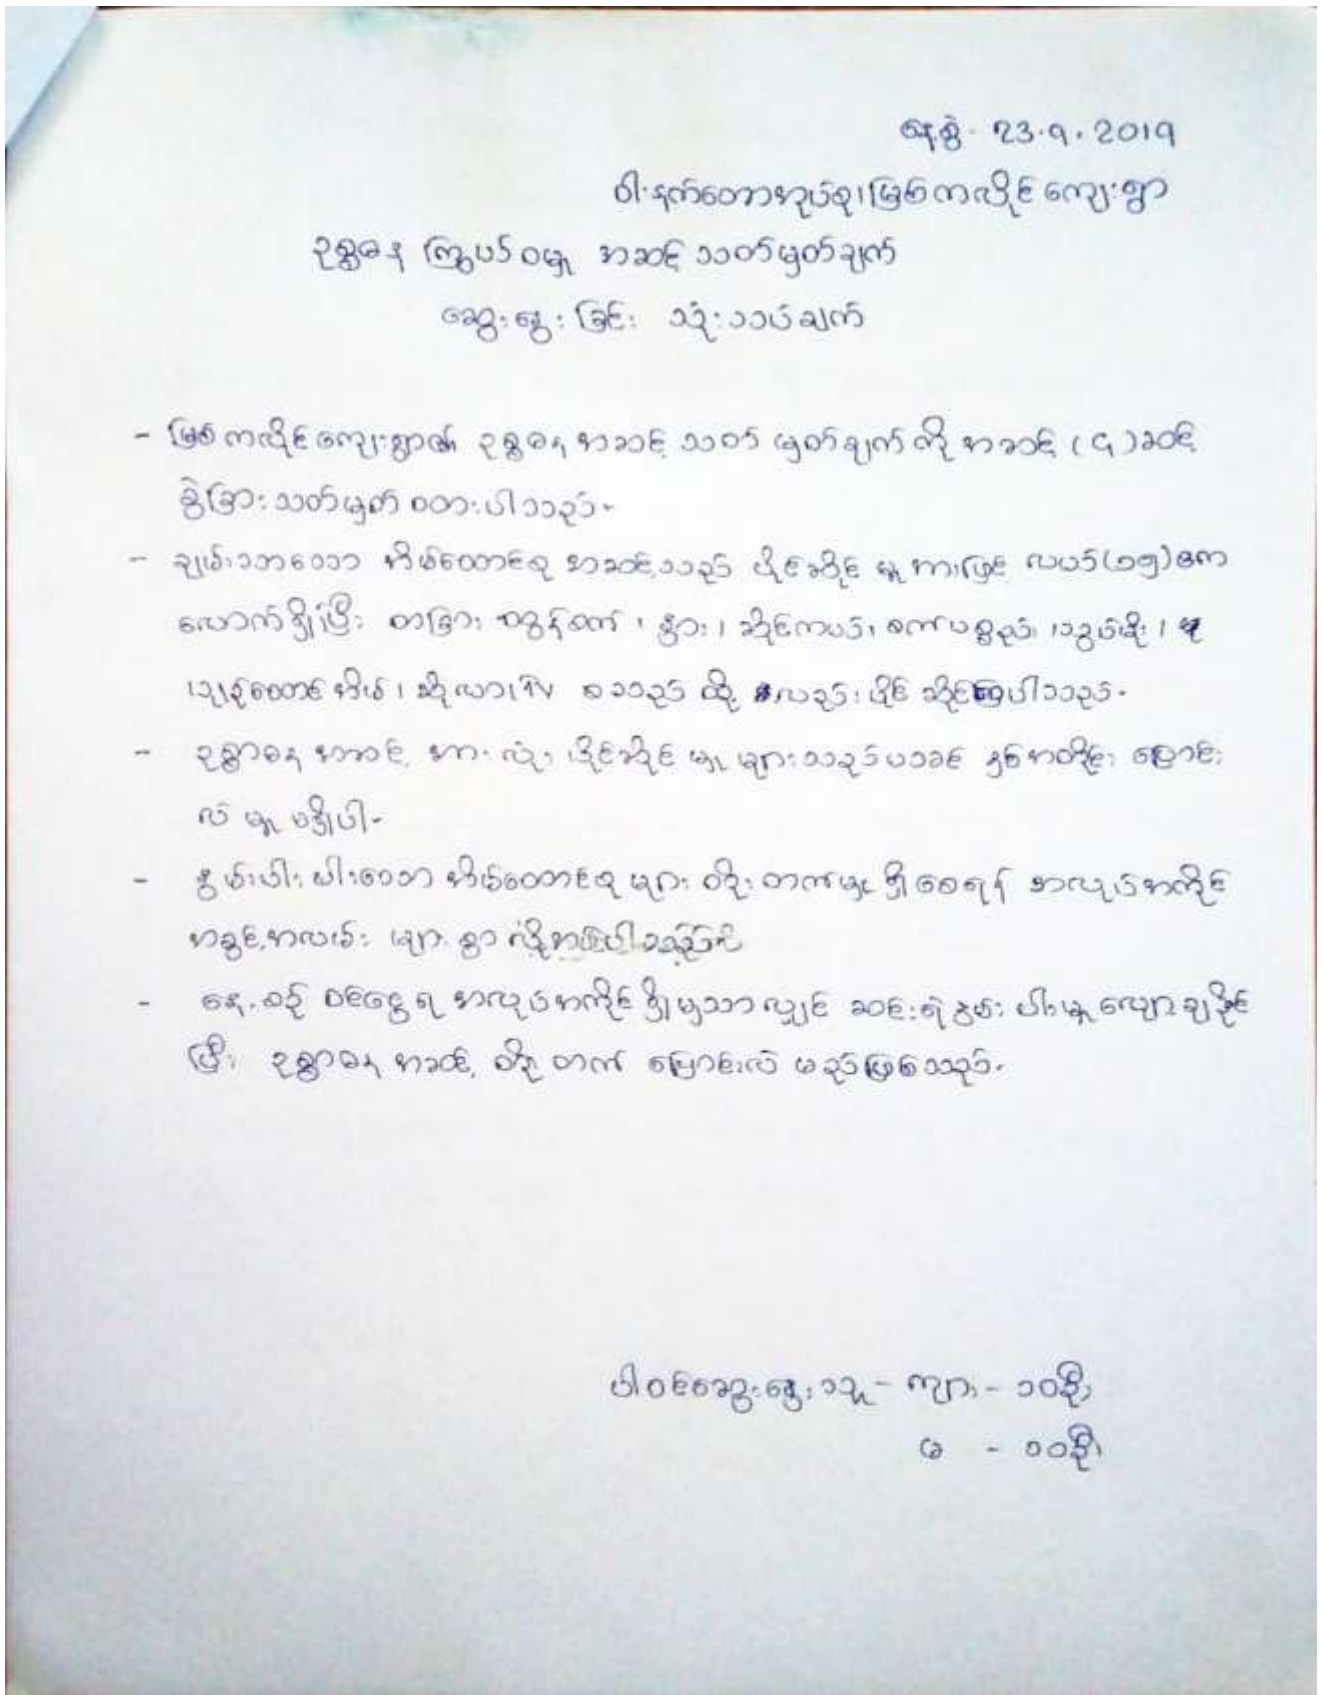 နေ့စွဲ - 23.9.2019
ဝါးနက်တောအုပ်စု၊ မြစ်ကလိုင်ကျေးရွာ
ဥစ္စဓန ကြွယ်ဝမှု အဆင့်သတ်မှတ်ချက်
ဆွေးနွေးခြင်း သုံးသပ်ချက်
- မြစ်ကလိုင်ကျေးရွာ၏ ဥစ္စဓန အဆင့် သတ်မှတ်ချက်ကို အဆင့် (၄)ဆင့်
ခွဲခြားသတ်မှတ်ထားပါသည်။
- ချမ်းသာသော အိမ်ထောင်စု အဆင့်သည် ပိုင်ဆိုင်မှုအားဖြင့် လယ်(၁၅)ဧက
လောက်ရှိပြီး တခြား ထွန်စက်၊ နွား၊ ဆိုင်ကယ်၊ စက်ပစ္စည်း၊ သွပ်မိုး၊
ပျဉ်ထောင်အိမ်၊ ဆိုလာ၊ TV စသည်တို့ လည်းပိုင်ဆိုင်ကြပါသည်။
- ဥစ္စာဓန အဆင့် အားလုံး ပိုင်ဆိုင်မှုများသည် ယခင်နှစ်အတိုင်း ပြောင်း
လဲမှု မရှိပါ။
- နွမ်းပါးသော အိမ်ထောင်စုများ တိုးတက်မှုရှိစေရန် အလုပ်အကိုင်
အခွင့်အလမ်း များစွာ လိုအပ်ပါသည်။
- နေ့စဉ် ဝင်ငွေရ အလုပ်အကိုင်ရှိမှသာလျှင် ဆင်းရဲနွမ်းပါးမှု လျော့ချနိုင်
ပြီး ဥစ္စာဓန အဆင့် တိုးတက် ပြောင်းလဲမည်ဖြစ်သည်။
ပါဝင်ဆွေးနွေးသူ - ကျား - ၁၀ဦး
မ - ၁၀ဦး